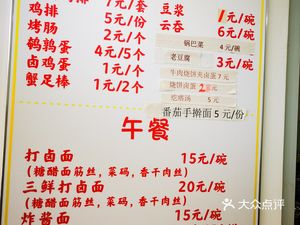 鸡排 7元/套
鸡排 5元/份
烤肠 2元/个
鹌鹑蛋 4元/5个
卤鸡蛋 1元/个
蟹足棒 1元/2个
豆浆 1元/碗
云吞 6元/碗
锅巴菜 4元/碗
老豆腐 3元/碗
牛肉烧饼夹卤蛋7元
烧饼卤蛋 2元
疙瘩汤 5元
番茄手擀面5元/份
午餐
打卤面 15元/碗
(糖醋面筋丝，菜码，香干肉丝)
三鲜打卤面 20元/碗
(糖醋面筋丝，菜码，香干肉丝)
炸酱面 15元/碗
大众点评